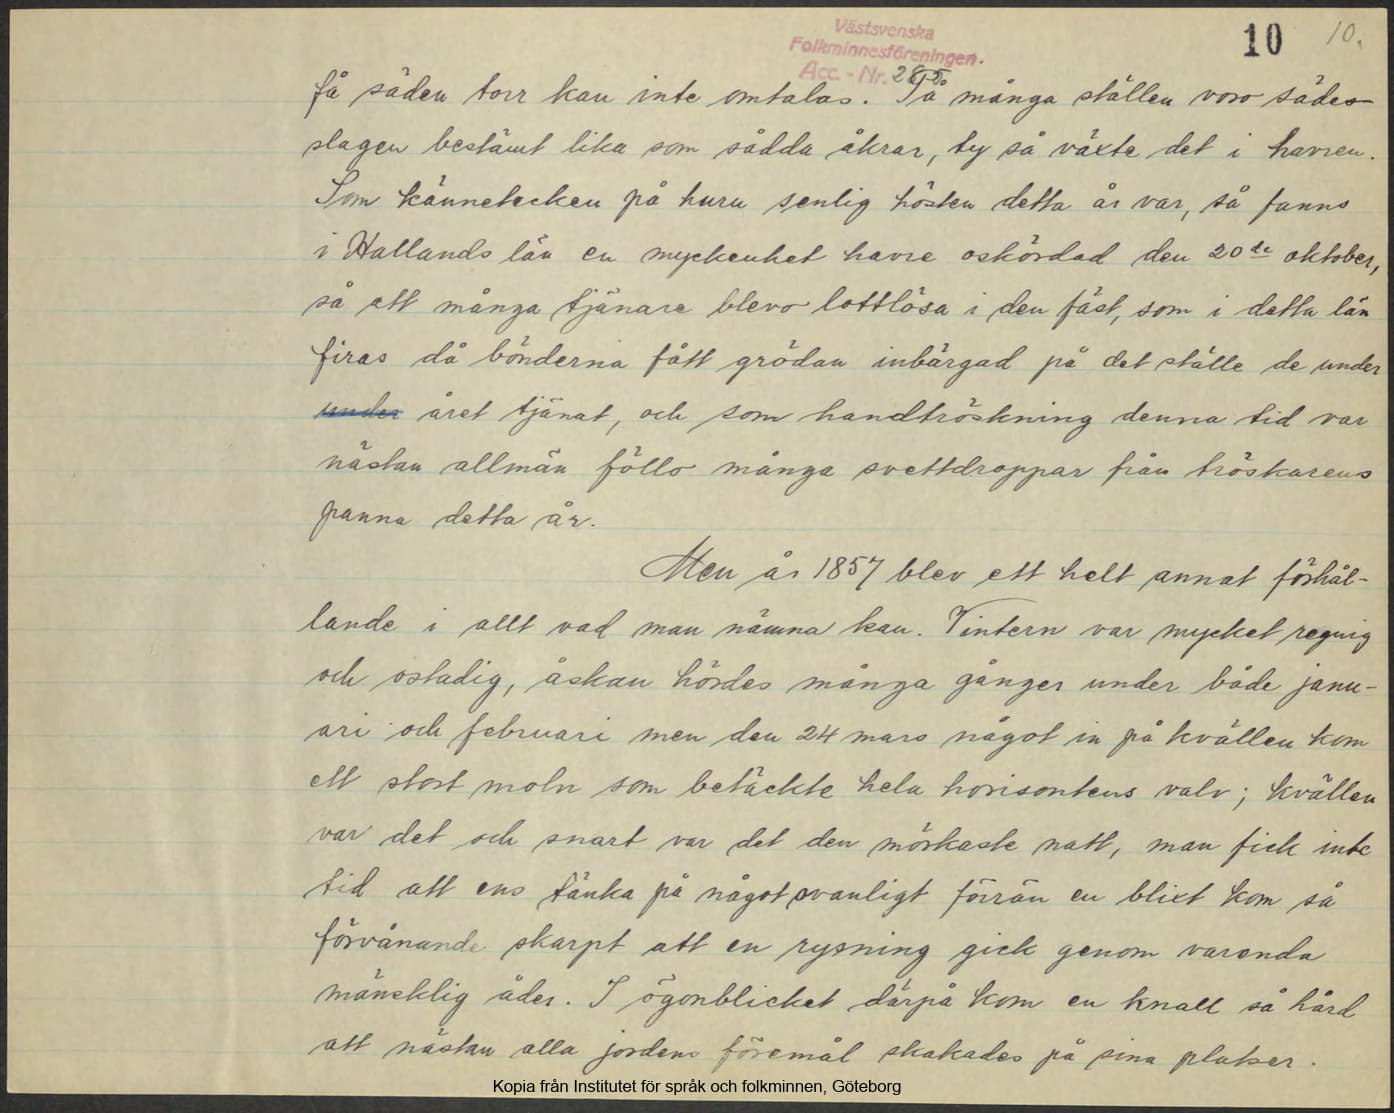 Västsvenska
Folkminnesföreningen.
Acc. - Nr.
10 10.
få säden torr kan inte omtalas. På många ställen voro sädes-
slagen bestämt lika som sådda åkrar, ty så växte det i havren.
Som kännetecken på huru senlig hösten detta år var, så fanns
i Hallands län en myckenhet havre oskördad den 20de oktober,
så att många tjänare blevo lottlösa i den fäst, som i detta län
firas då bönderna fått grödan inbärgad på det ställe de under
under året tjänat, och som handtröskning denna tid var
nästan allmän föllo många svettdroppar från tröskarens
panna detta år.
Men år 1857 blev ett helt annat förhål-
lande i allt vad man nämna kan. Vintern var mycket regnig
och ostadig, åskan hördes många gånger under både janu-
ari och februari men den 24 mars något in på kvällen kom
ett stort moln som betäckte hela horisontens valv; kvällen
var det och snart var det den mörkaste natt, man fick inte
tid att ens tänka på något ovanligt förrän en blixt kom så
förvånande skarpt att en rysning gick genom varenda
mänsklig åder. I ögonblicket därpå kom en knall så hård
att nästan alla jordens föremål skakades på sina platser.
Kopia från Institutet för språk och folkminnen, Göteborg